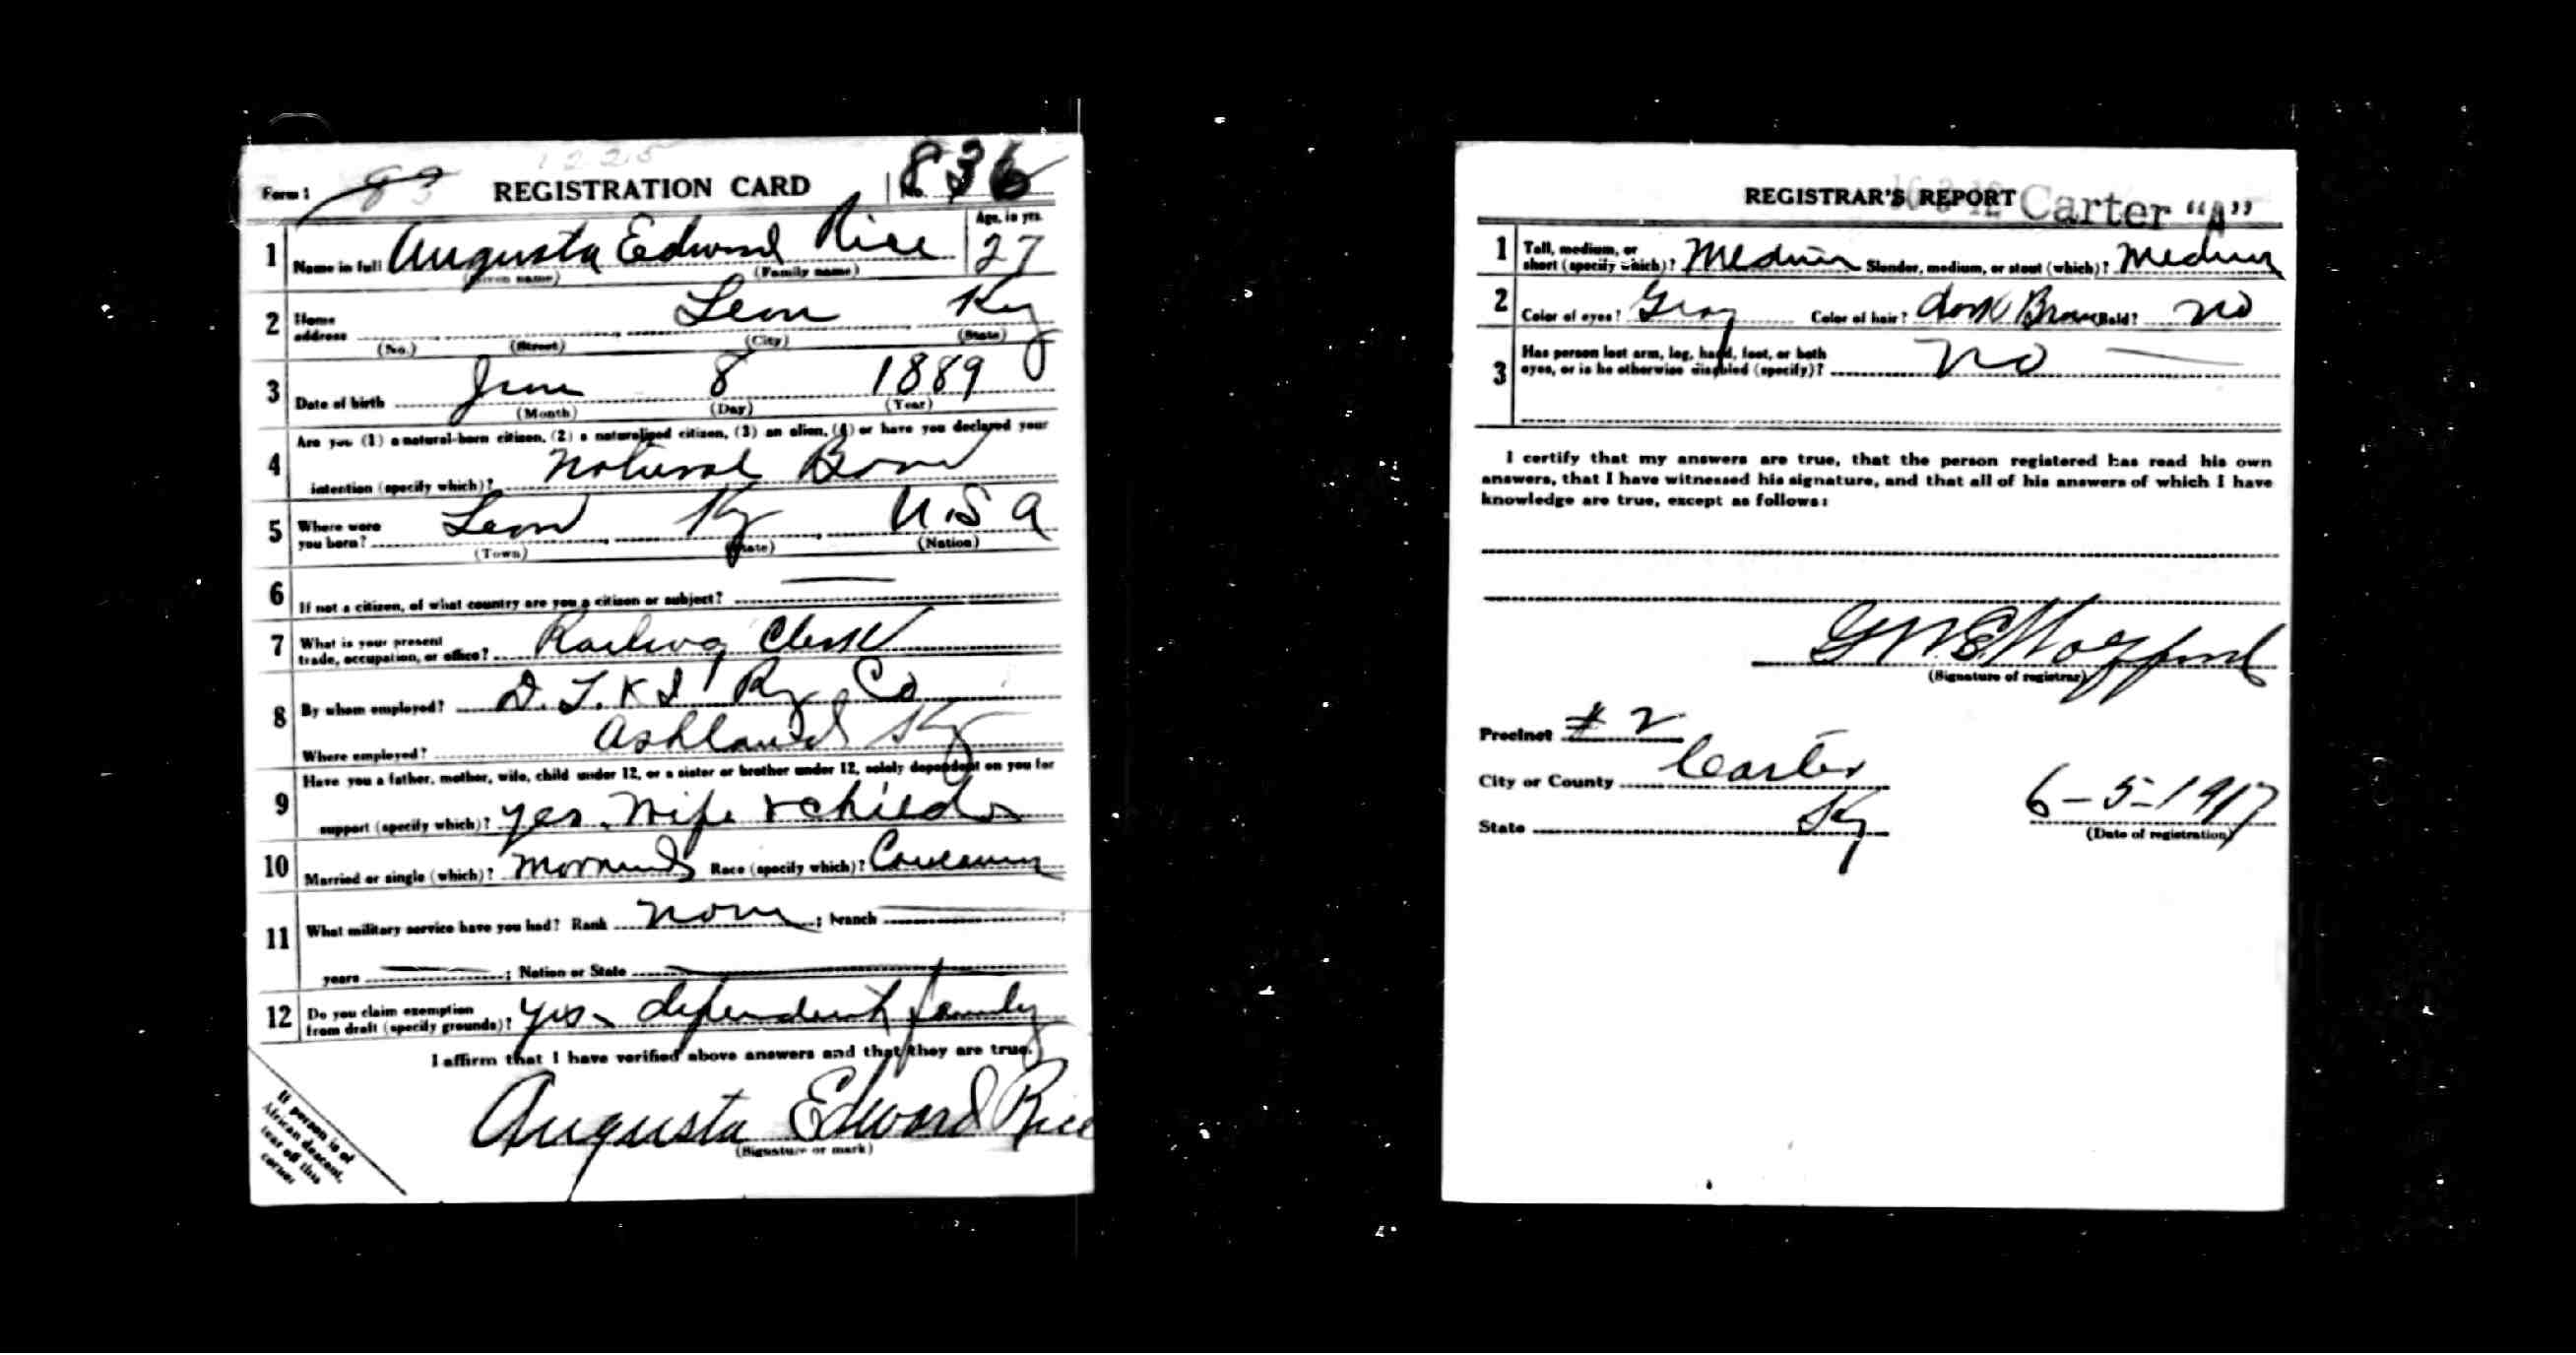 1225
Form 1 83 REGISTRATION CARD No. 836
1 Name in full Augusta Edward Rice Age, in yrs. 27
(Given name) (Family name)
2 Home address Leon Ky
(No.) (Street) (City) (State)
3 Date of birth June 8 1889
(Month) (Day) (Year)
4 Are you (1) a natural-born citizen, (2) a naturalized citizen, (3) an alien, (4) or have you declared your
intention (specify which)? Natural Born
5 Where were you born? Leon Ky U.S A
(Town) (State) (Nation)
6 If not a citizen, of what country are you a citizen or subject?
7 What is your present trade, occupation, or office? Railway Clerk
8 By whom employed? Ry Co
Where employed? Ashland Ky
9 Have you a father, mother, wife, child under 12, or a sister or brother under 12, solely dependent on you for
support (specify which)? yes. Wife & child
10 Married or single (which)? Married Race (specify which)? Caucasian
11 What military service have you had? Rank None ; branch
years ; Nation or State
12 Do you claim exemption from draft (specify grounds)? yes - dependent family
I affirm that I have verified above answers and that they are true.
Augusta Edward Rice
(Signature or mark)
If person is of
African descent,
tear off this
corner
REGISTRAR'S REPORT Carter "A"
1 Tall, medium, or short (specify which)? Medium Slender, medium, or stout (which)? Medium
2 Color of eyes? Gray Color of hair? dark Brown Bald? No
3 Has person lost arm, leg, hand, foot, or both
eyes, or is he otherwise disabled (specify)? No
I certify that my answers are true, that the person registered has read his own
answers, that I have witnessed his signature, and that all of his answers of which I have
knowledge are true, except as follows:
(Signature of registrar)
Precinct # 2
City or County Carter
State Ky 6-5-1917
(Date of registration)